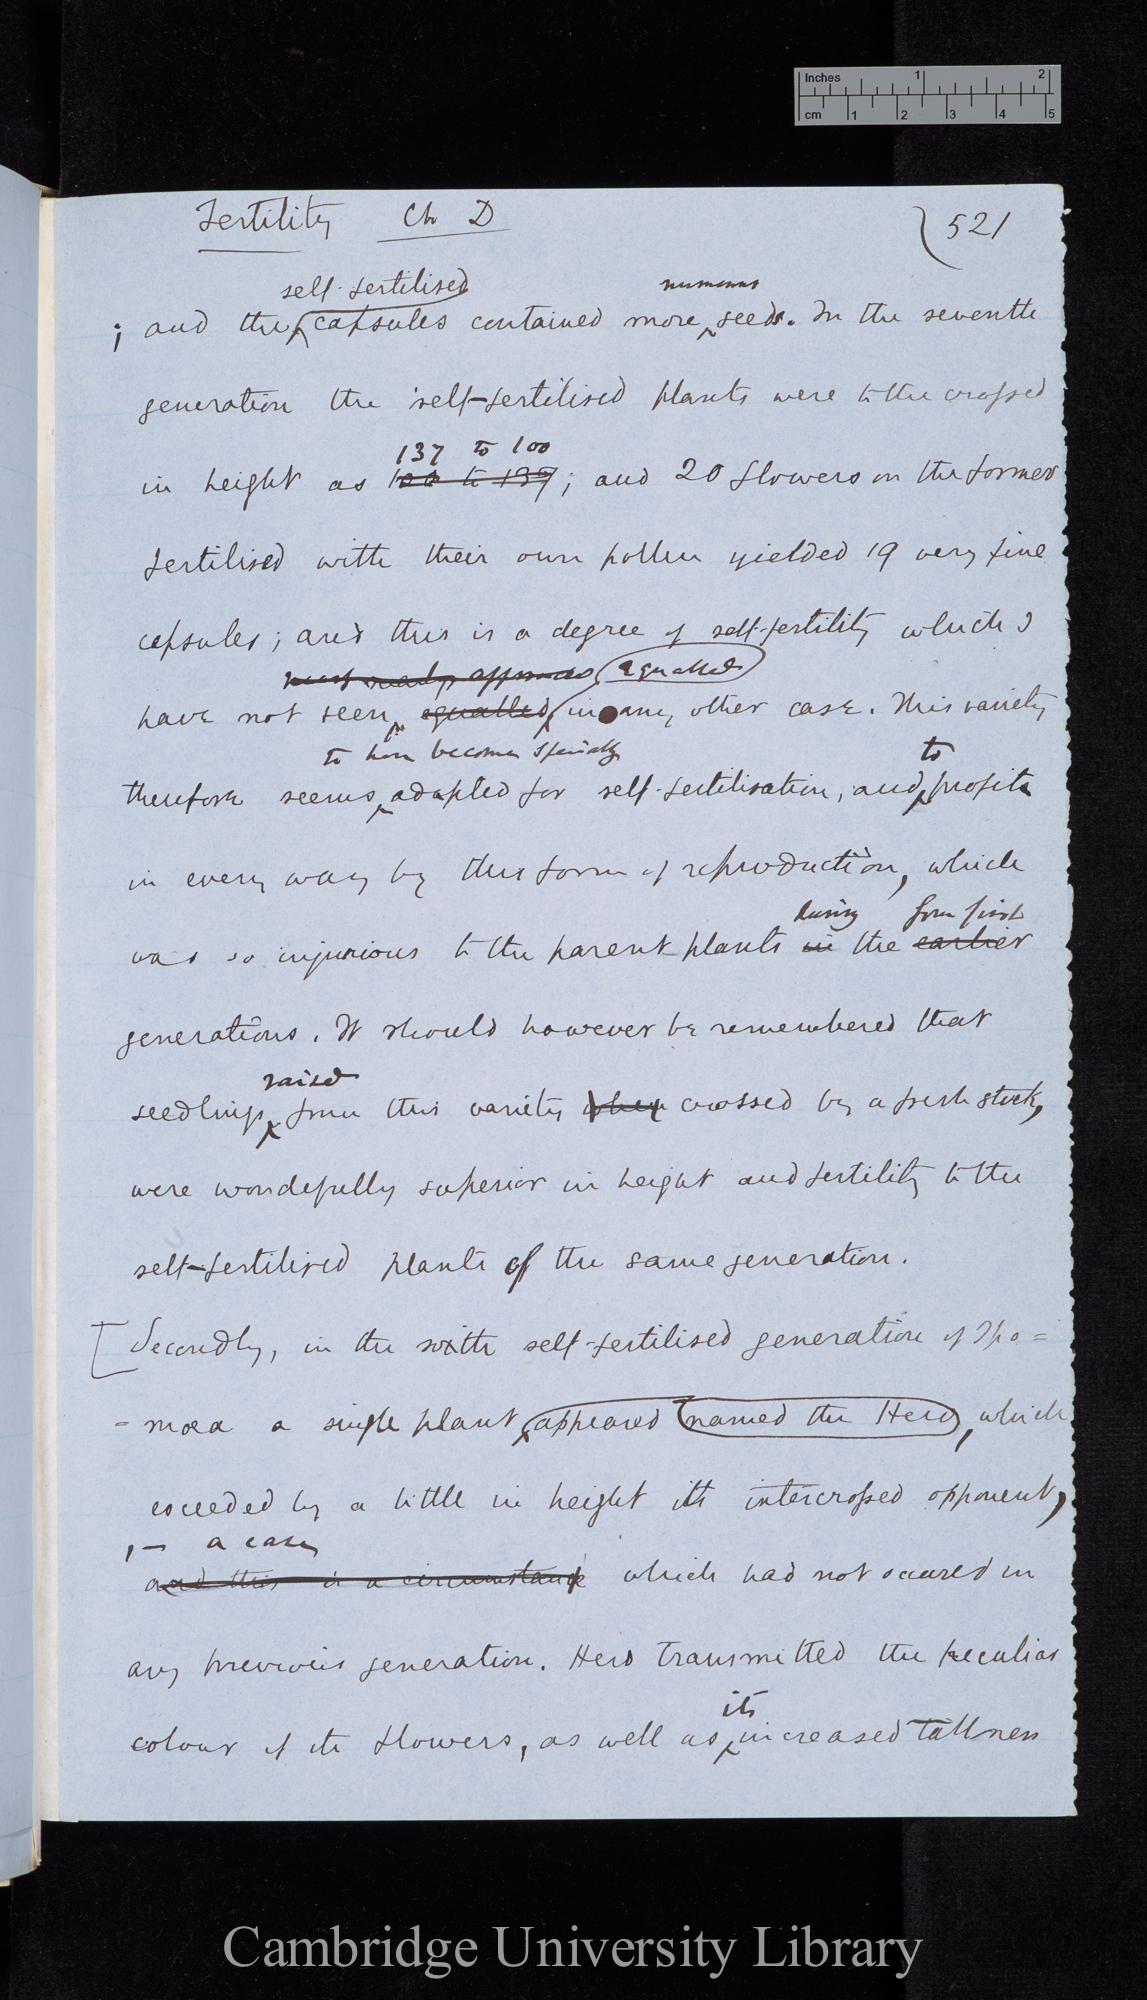 Inches 1 2
cm 1 2 3 4 5
Fertility Ch D 521
self-fertilised numerous
; and the capsules contained more seeds. In the seventh
generation the self-fertilised plants were to the crossed
137 to 100
in height as 100 to 137; and 20 flowers on the former
fertilised with their own pollen yielded 19 very fine
capsules; and this is a degree of self-fertility which I
equalled
have not seen equalled in any other case. This variety
to have become specially to
therefore seems adapted for self-fertilisation, and profits
in every way by this form of reproduction, which
during four first
was so injurious to the parent plants in the earlier
generations. It should however be remembered that
raised
seedlings from this variety when crossed by a fresh stock,
were wondefully superior in height and fertility to the
self-fertilised plants of the same generation.
[Secondly, in the sixth self-fertilised generation of Ipo=
-moea a single plant appeared named the Hero, which
exceeded by a little in height its intercrossed opponent,
,— a case
and this is a circumstance which had not occured in
any previous generation. Hero transmitted the peculiar
its
colour of its flowers, as well as increased tallness
Cambridge University Library